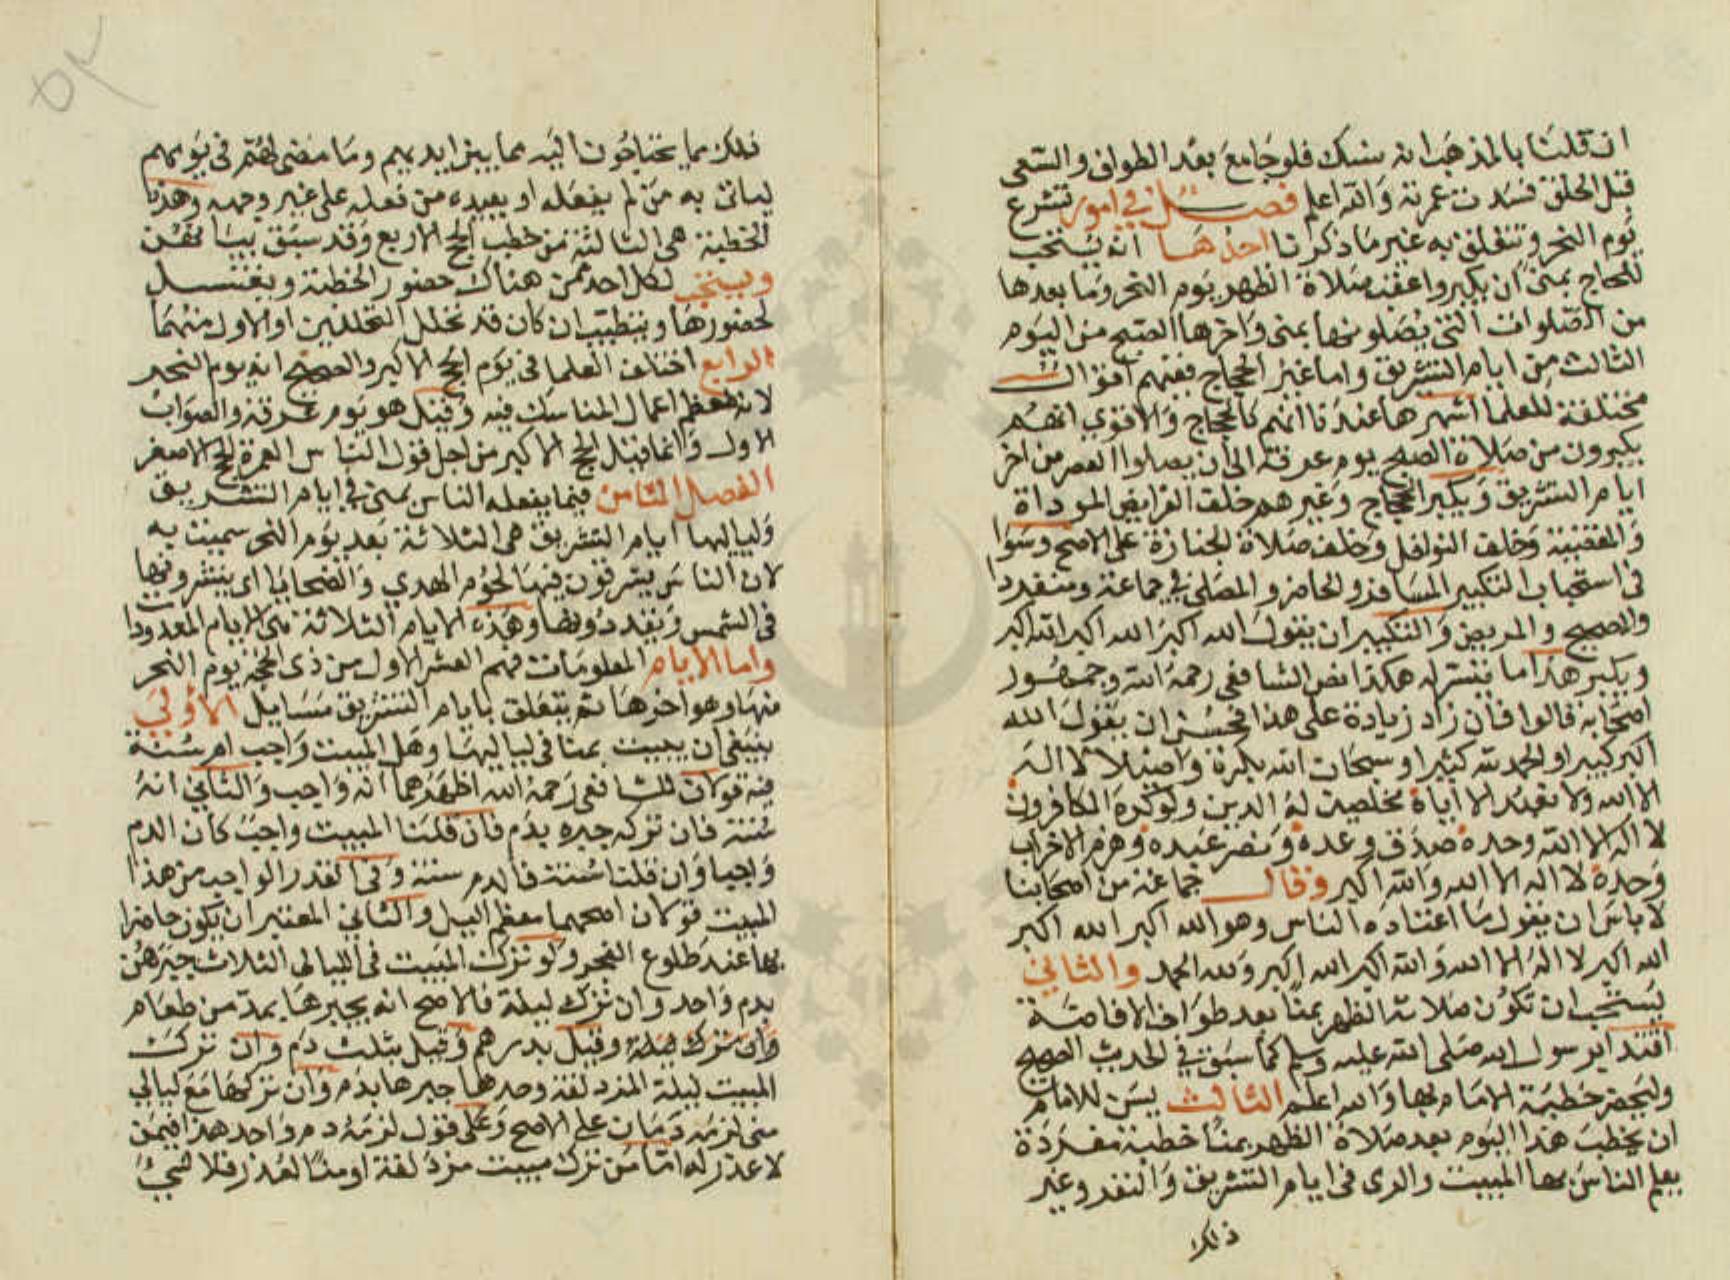 ان قلنا بالمذهب انه نسك فلو جامع بعد الطواف والسعى
قبل الحلق فسدت عمرته والله اعلم فصل في امور تشرع
يوم النحر وتتعلق به غير ما ذكرنا احدها انه يستحب
للحاج بمنى ان يكبروا عقب صلاة الظهر يوم النحر وما بعدها
من الصلوات التي يصلونها بمنى واخرها الصبح من اليوم
الثالث من ايام التشريق واما غير الحجاج ففيهم اقوال
مختلفة للعلما اشهرها عندنا انهم كالحجاج والاقوي انهم
يكبرون من صلاة الصبح يوم عرفة الى ان يصلوا العصر من اخر
ايام التشريق ويكبر الحجاج وغيرهم خلف الفرايض الموداة
والمقضية وخلف النوافل وخلف صلاة الجنازة على الاصح وسوا
فى استحباب التكبير المسافر والحاضر والمصلى في جماعة ومنفردا
والصحيح والمريض والتكبير ان يقول الله اكبر الله اكبر الله اكبر
ويكبر هذا ما تيسر له هكذا نص الشافعى رحمه الله وجمهور
اصحابه قالوا فان زاد زيادة على هذا فحسن ان يقول الله
اكبر كبيرا والحمد لله كثيرا وسبحان الله بكرة واصيلا لا اله
الا الله ولا نعبد الا اياه مخلصين له الدين ولو كره الكافرون
لا اله الا الله وحده صدق وعده ونصر عبده وهزم الاحزاب
وحده لا اله الا الله والله اكبر وقال جماعة من اصحابنا
لا باس ان يقول ما اعتاده الناس وهو الله اكبر الله اكبر
الله اكبر لا اله الا الله والله اكبر الله اكبر ولله الحمد والثاني
يستحب ان تكون صلاته الظهر بمنا بعد طواف الافاضة
اقتدا برسول الله صلى الله عليه وسلم كما سبق في الحديث الصحيح
وليحضر خطبة الامام بها والله اعلم الثالث يسن للامام
ان يخطب هذا اليوم بعد صلاة الظهر بمنا خطبة مفردة
يعلم الناس بها المبيت والرمى فى ايام التشريق والنفر وغير
ذلك
٥٢
ذلك مما يحتاجون اليه مما بين ايديهم وما مضى لهم فى يومهم
لياتى به من لم يفعله او يعيده من فعله على غير وجهه وهذه
الخطبة هى الثالثة من خطب الحج الاربع وقد سبق بيانهن
ويستحب لكل احد ممن هناك حضور الخطبة ويغتسل
لحضورها ويتطيب ان كان قد تحلل التحللين او الاول منهما
الرابع اختلف العلما فى يوم الحج الاكبر والصحيح انه يوم النحر
لانه معظم اعمال المناسك فيه وقيل هو يوم عرفة والصواب
الاول وانما قيل الحج الاكبر من اجل قول الناس العمرة الحج الاصغر
الفصل الثامن فيما يفعله الناس بمنى في ايام التشريق
ولياليها ايام التشريق هى الثلاثة بعد يوم النحر سميت به
لان الناس يشرقون فيها لحوم الهدي والضحايا اى ينشرونها
فى الشمس ويقددونها وهذه الايام الثلاثة هى الايام المعدودات
واما الايام المعلومات فهم العشر الاول من ذى الحجه يوم النحر
منها وهو اخرها ثم يتعلق بايام التشريق مسايل الاولي
ينبغى ان يبيت بمنا فى لياليها وهل المبيت واجب ام سنة
فيه قولان للشافعى رحمه الله اظهرهما انه واجب والثاني انه
سنة فان تركه جبره بدم فان قلنا المبيت واجب كان الدم
واجبا وان قلنا سنة فالدم سنة وفى القدر الواجب من هذا
المبيت قولان اصحهما معظم الليل والثاني المعتبر ان يكون حاضرا
بها عند طلوع الفجر ولو ترك المبيت فى الليالى الثلاث جبرهن
بدم واحد وان ترك ليلة فالاصح انه يجبرها بمد من طعام
وان ترك ليلة وقيل بدرهم وقيل بثلث دم وان ترك
المبيت ليلة المزدلفة وحدها جبرها بدم وان تركها مع ليالي
منى لزمه دمان على الاصح وعلى قول لزمه دم واحد هذا فيمن
لا عذر له اما من ترك مبيت مزدلفة او منا لعذر فلا شئ